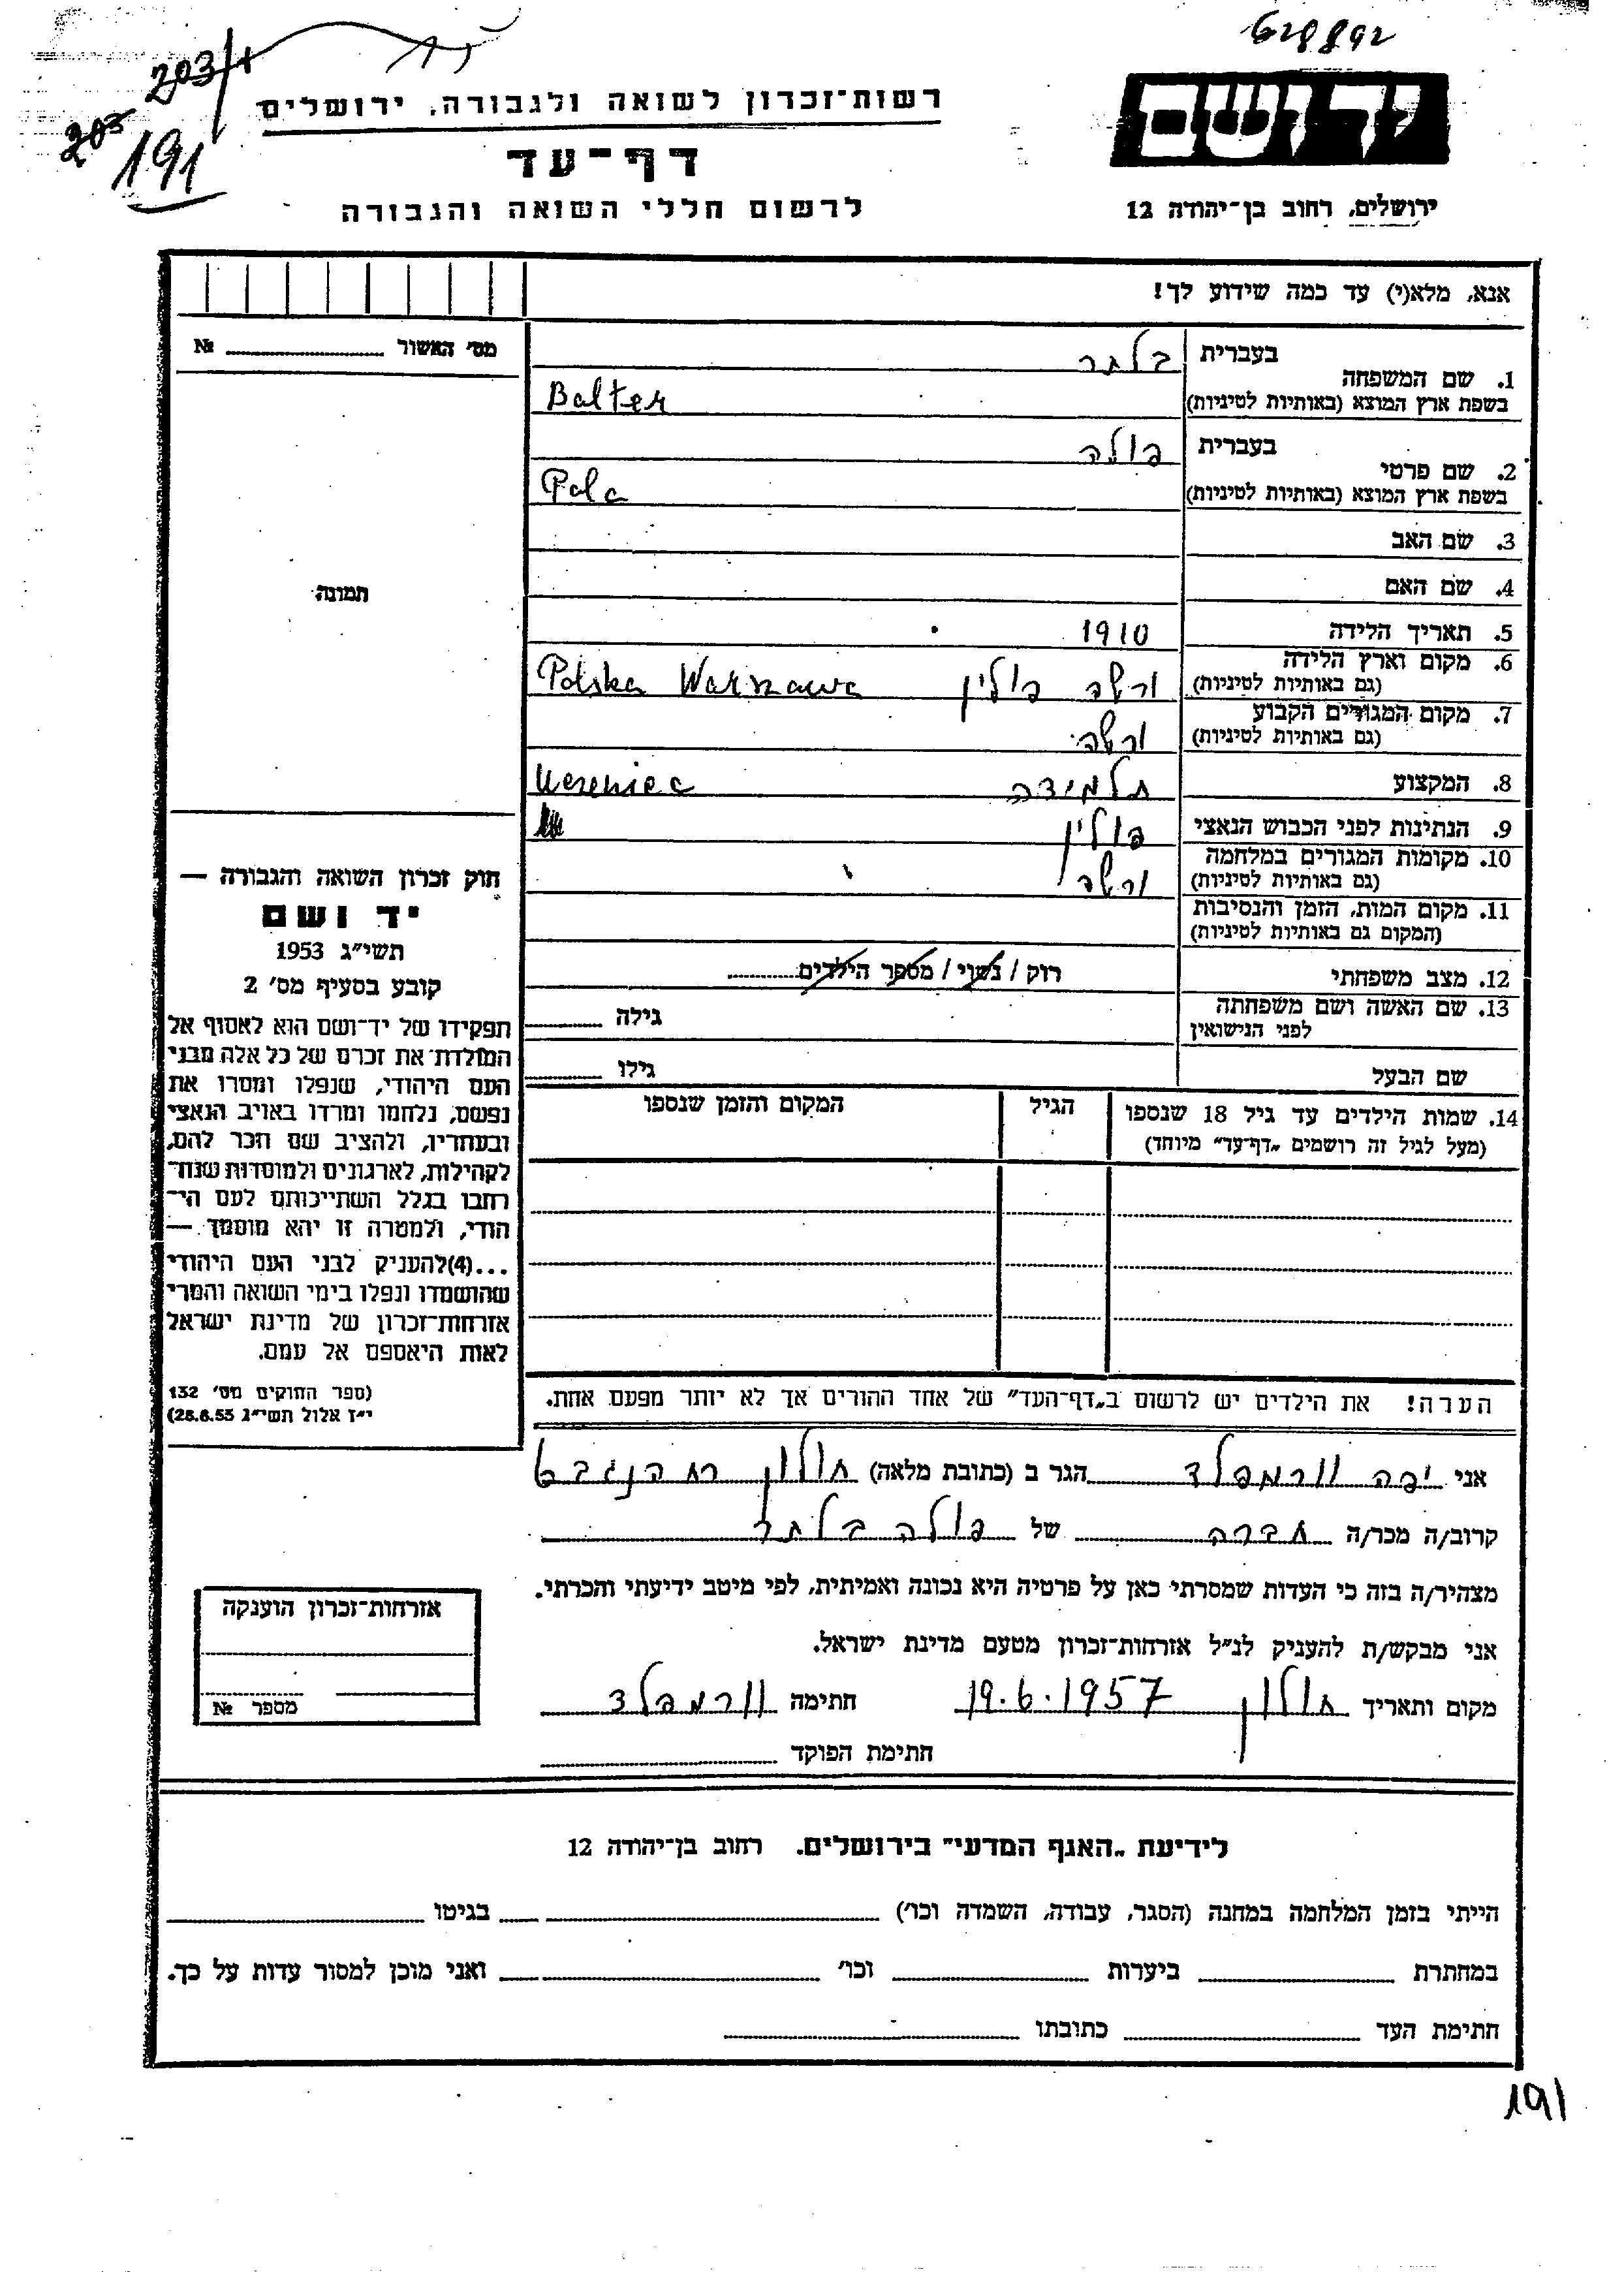 628892
203/1
203
191
רשות-זכרון לשואה ולגבורה, ירושלים
ידושם
דף-עד
לרשום חללי השואה והגבורה
ירושלים, רחוב בן-יהודה 12
אנא, מלא(י) עד כמה שידוע לך!
מס' האשור № 
1. שם המשפחה
בעברית בלתר
בשפת ארץ המוצא (באותיות לטיניות) Balter
2. שם פרטי
בעברית פולה
בשפת ארץ המוצא (באותיות לטיניות) Pola
3. שם האב
4. שם האם
תמונה
5. תאריך הלידה 1910
6. מקום וארץ הלידה
(גם באותיות לטיניות) ורשה פולין Polska Warszawa
7. מקום המגורים הקבוע
(גם באותיות לטיניות) ורשה
8. המקצוע תלמידה
9. הנתינות לפני הכבוש הנאצי פולין
10. מקומות המגורים במלחמה
(גם באותיות לטיניות) ורשה
11. מקום המות, הזמן והנסיבות
(המקום גם באותיות לטיניות)
12. מצב משפחתי רוק / נשוי / מספר הילדים
13. שם האשה ושם משפחתה
לפני הנישואין
גילה
שם הבעל
גילו
14. שמות הילדים עד גיל 18 שנספו
(מעל לגיל זה רושמים „דף-עד" מיוחד)
הגיל
המקום והזמן שנספו
חוק זכרון השואה והגבורה —
יד ושם
תשי"ג 1953
קובע בסעיף מס' 2
תפקידו של יד-ושם הוא לאסוף אל
המולדת את זכרם של כל אלה מבני
העם היהודי, שנפלו ומסרו את
נפשם, נלחמו ומרדו באויב הנאצי
ובעוזריו, ולהציב שם וזכר להם,
לקהילות, לארגונים ולמוסדות שנח-
רחבו בגלל השתייכותם לעם הי-
הודי, ולמטרה זו יהא מוסמך —
...(4)להעניק לבני העם היהודי
שהושמדו ונפלו בימי השואה והמרי
אזרחות-זכרון של מדינת ישראל
לאות היאספם אל עמם.
(ספר החוקים מס' 132
י"ז אלול תשי"ג 28.8.53)
הערה! את הילדים יש לרשום ב„דף-העד" של אחד ההורים אך לא יותר מפעם אחת.
אני יפה וורמפלד הגר ב (כתובת מלאה) חולון רח הנגב 6
קרוב/ה מכר/ה חברה של פולה בלתר
מצהיר/ה בזה כי העדות שמסרתי כאן על פרטיה היא נכונה ואמיתית, לפי מיטב ידיעתי והכרתי.
אני מבקש/ת להעניק לנ"ל אזרחות-זכרון מטעם מדינת ישראל.
מקום ותאריך חולון 19.6.1957 חתימה וורמפלד
חתימת הפוקד
אזרחות-זכרון הוענקה
מספר №
לידיעת „האגף המדעי" בירושלים. רחוב בן-יהודה 12
הייתי בזמן המלחמה במחנה (הסגר, עבודה, השמדה וכו') בגיטו
במחתרת ביערות וכו' ואני מוכן למסור עדות על כך.
חתימת העד כתובתו
191